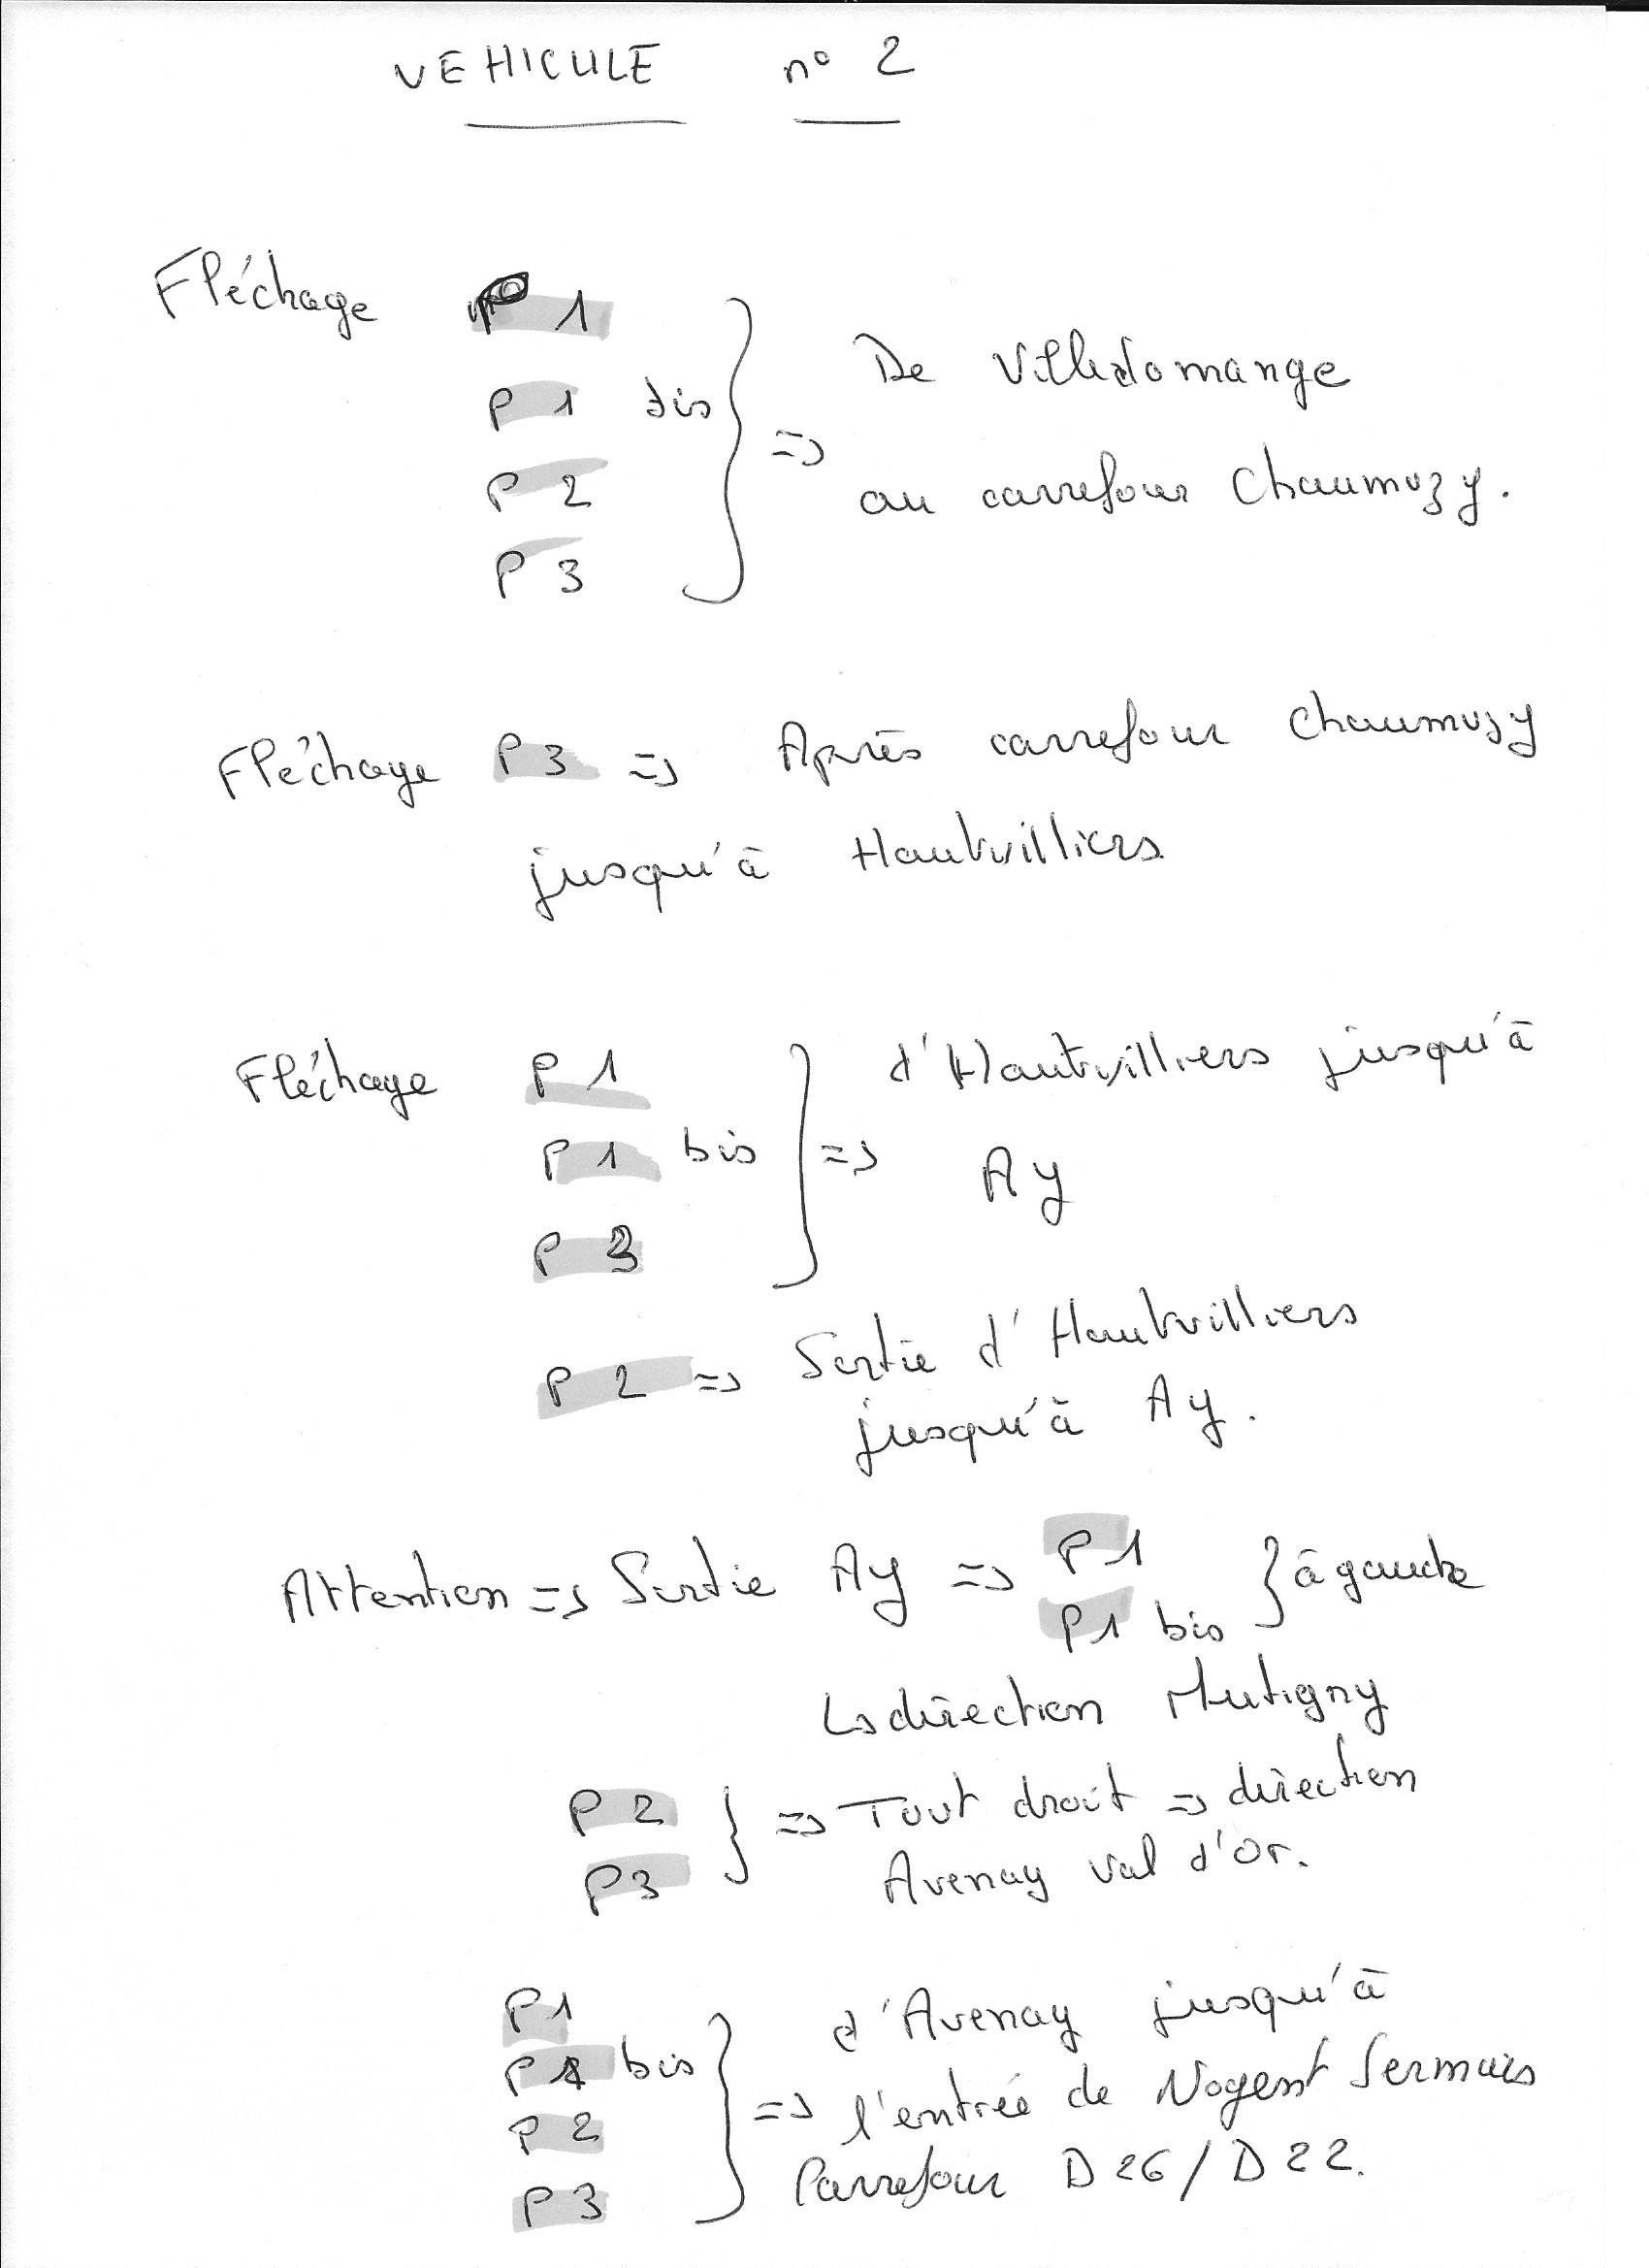 VEHICULE n° 2
Fléchage P 1
P 1 bis
P 2
P 3
} => De Villedomange
au carrefour Chaumuzy.
Fléchage P 3 => Après carrefour Chaumuzy
jusqu'à Hautvilliers
Fléchage P 1
P 1 bis
P 3
} => d'Hautvilliers jusqu'à
Ay
P 2 => Sortie d'Hautvilliers
jusqu'à Ay.
Attention => Sortie Ay => P1
P1 bis } à gauche
↳ direction Mutigny
P 2
P3
} => Tout droit => direction
Avenay val d'or.
P1
P1 bis
P 2
P 3
} => d'Avenay jusqu'à
l'entrée de Nogent Sermiers
Carrefour D26/D22.